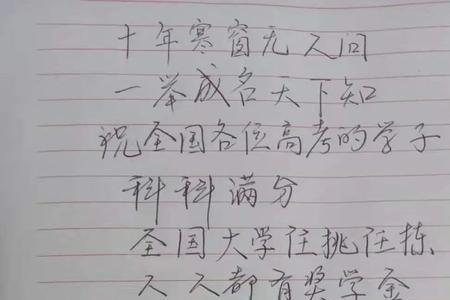 十年寒窗无人问
一举成名天下知
祝全国各位高考的学子
科科满分
全国大学任挑任拣、
人人都有奖学金